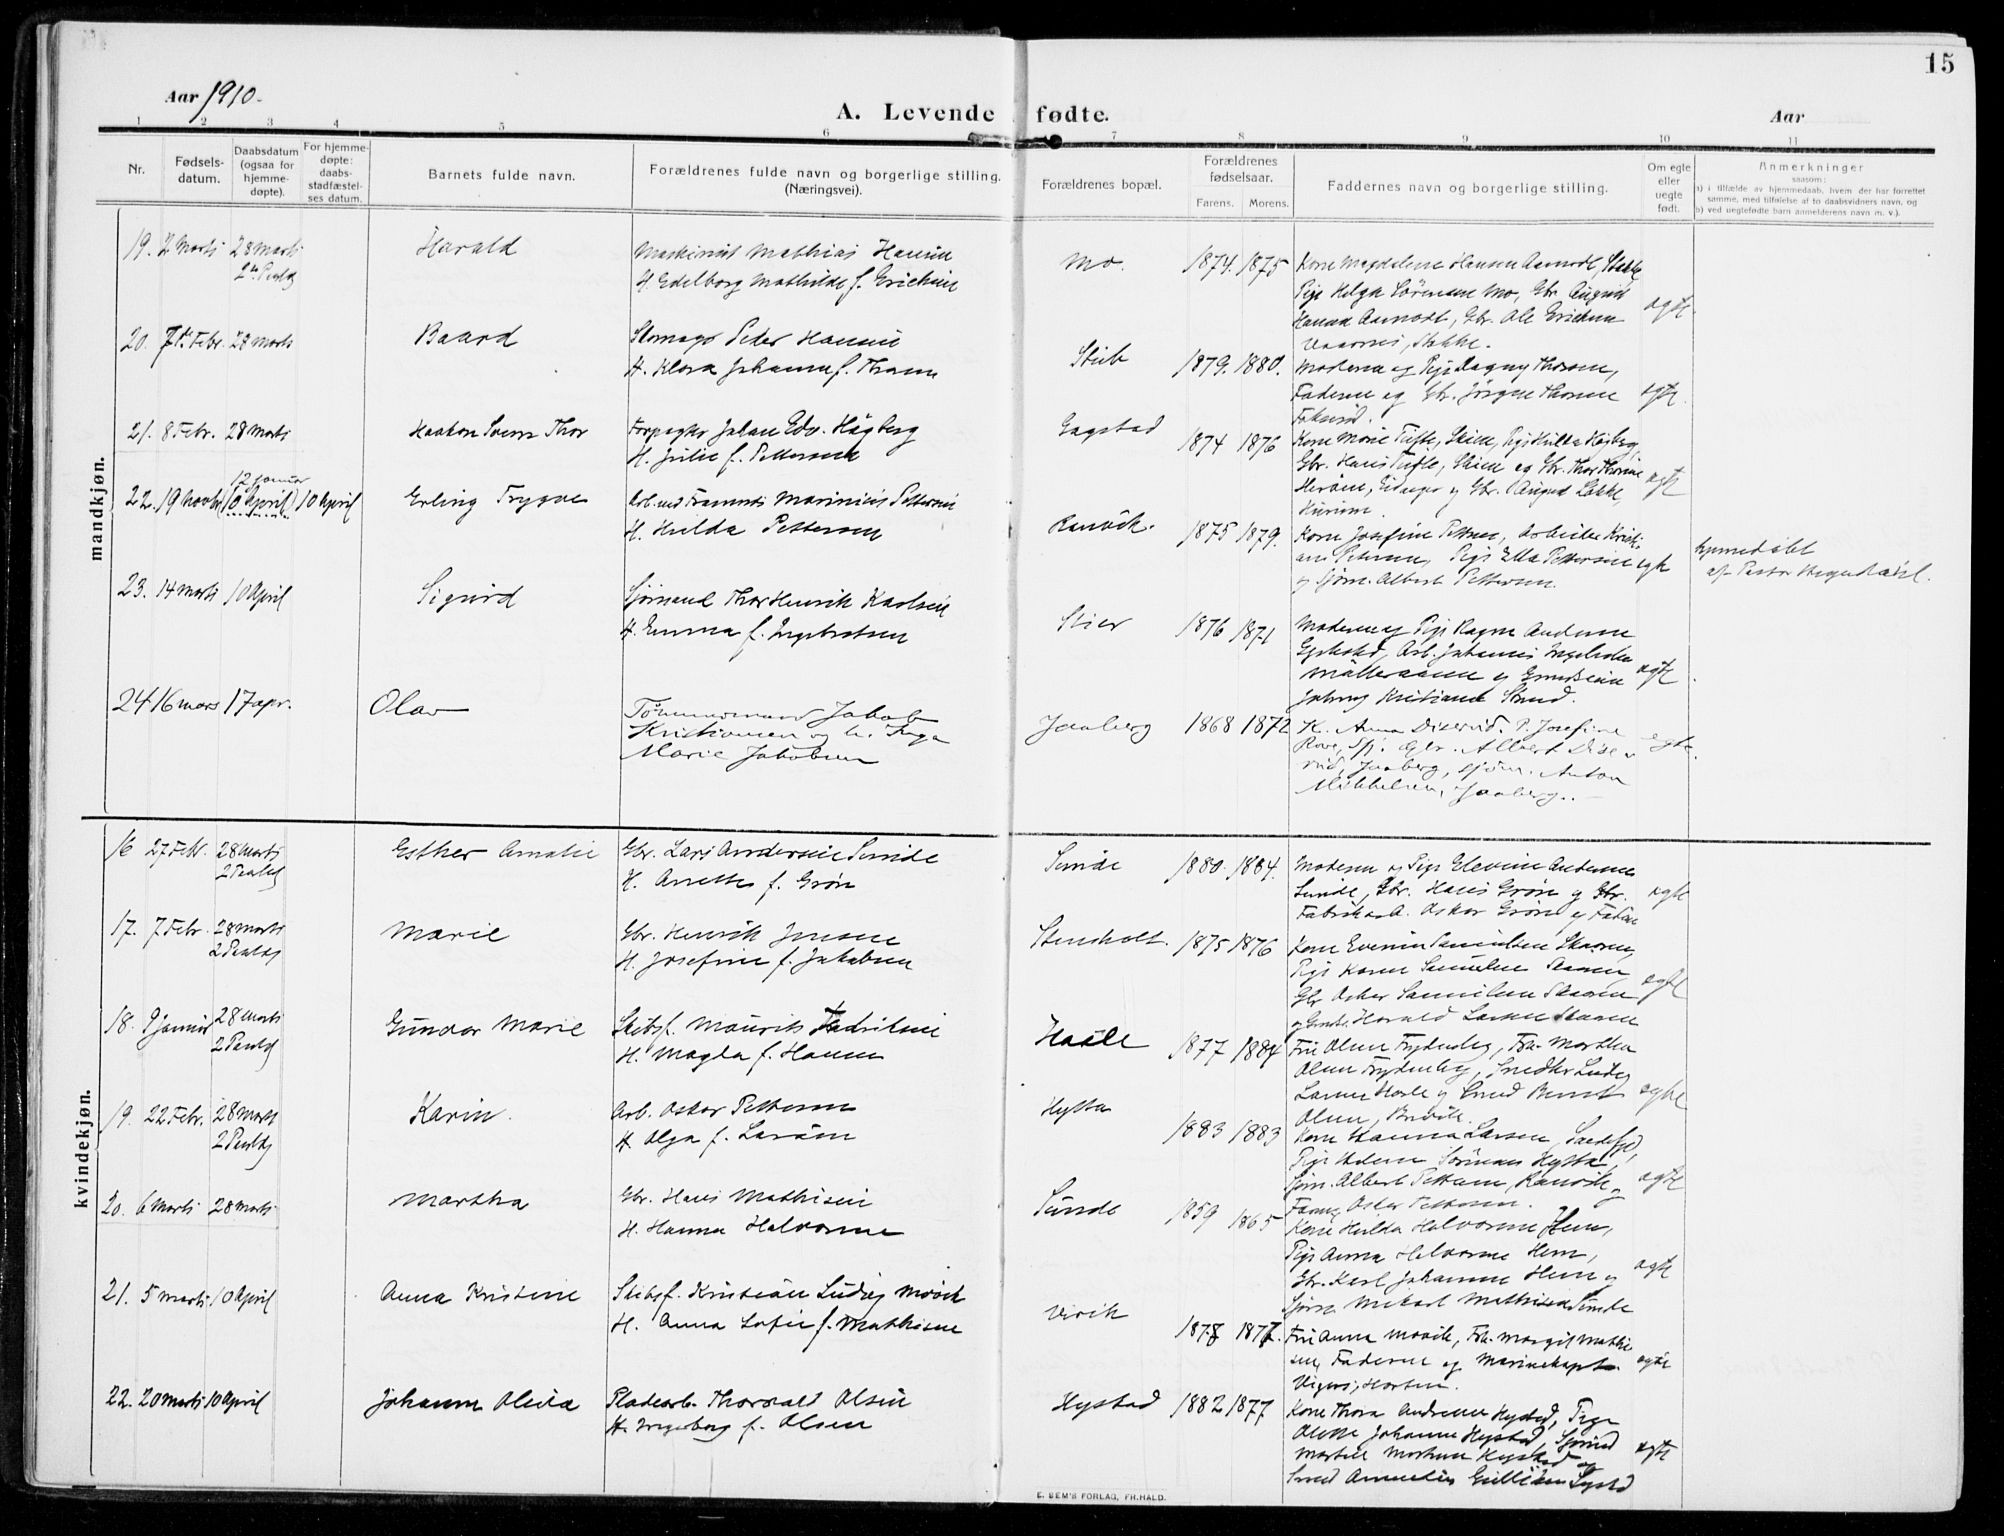 15
Aar 1910.
A. Levende fødte.
Aar
1 2 3 4 5 6 7 8 9 10 11
Nr.
Fødsels-
datum.
Daabsdatum
(ogsaa for
hjemme-
døpte).
For hjemme-
døpte:
daabs-
stadfæstel-
ses datum.
Barnets fulde navn.
Forældrenes fulde navn og borgerlige stilling.
(Næringsvei).
Forældrenes bopæl.
Forældrenes
fødselsaar.
Farens. Morens.
Faddernes navn og borgerlige stilling.
Om egte
eller
uegte
født.
Anmerkninger
saasom:
a) i tilfælde av hjemmedaab, hvem der har forrettet
samme, med tilføielse af to daabsvidners navn, og
b) ved uegtefødte barn anmelderens navn m. v.).
mandkjøn.
19. 2 Marts 28 Marts Harald Maskinist Mathias Hansen
H. Edelborg Mathilde f. Erichsen
Mo. 1874. 1875 Kone Magdalene Hansen Aamodt, Stokke
Pige Helga Sørensen Mo, Gbr. August
Hansen Aamodt, Gbr. Ole Erichsen
Stokke.
egte
20. 7 Febr. 28 Marts Baard Peder Hansen
H. Klara Johanne f. Thorsen
Stub 1879. 1880. Moderen og Pige Dagny Thorsen,
Faderen og Gbr. Jørgen Thorsen
egte.
21. 8 Febr. 28 Marts Haakon Svenn Thor Forpagter Johan Edv. Hägberg
H. Julie f. Pettersen
Gogstad 1874 1876 Kone Marie Tufte, Skien, Pige Hulda Högberg,
Gbr. Hans Tufte, Skien og Gbr. Thor Thorsen
Herøen, Eidanger og Gbr. August Løkke,
egte
12 januar
22. 19 Novbr (10 April) 10 April Erling Trygve Arb. ved Framnæs Marinius Pettersen
H. Hulda Pettersen
Ranvik. 1875 1879. Kone Josefine Pettersen, Arbeider Kristi-
an Pettersen, Pige Ella Pettersen
og Sjøm. Albert Pettersen.
egte
hjemmedøbt
af Pastor
23. 14 Marts 10 April Sigurd Sjømand Thor Henrik Karlsen
H. Emma f. Ingebretsen
Skier 1876 1871 Moderen og Pige Ragna Andersen
Arb. Johannes Ingebretsen
Kristiane Strand.
egte.
24 16 mars 17 apr. Olav Tømmermand Jakob
Kristiansen og h. Inga
Marie Jakobsen
Jaaberg 1868 1872 K. Anna Diserud. P. Josefine
Rove, Sfj. Gbr. Albert Dise-
rud, Jaaberg, sjøm. Anton
Mikkelsen, Jaaberg.
egte.
kvindekjøn.
16 27 Febr. 28 Marts Esther Amalie Gbr. Lars Andersen Sunde
H. Anette f. Grøn
Sunde 1880. 1884. Moderen og Pige Elevine Andersen
Sunde, Gbr. Hans Grøn og Gbr.
Fabrika. Oskar Grøn og Faderen
egte
17. 7 Febr. 28 Marts Marie Gbr. Henrik Jensen
H. Josefine f. Jakobsen
Stenholt. 1875 1876 Kone Evenine Samuelsen Skaaren,
Pige Karen Samuelsen Skaaren
Gbr Oskar Samuelsen Skaaren
og Harald Larsen Skaaren
egte
18. 9 januar 28 Marts Gunvor Marie Skibsf. Maurits Fredriksen
H. Magda f. Hansen
Hasle 1877 1884 Fru Olsen Frydenberg, Frk. Martha
Olsen Frydenberg, Snedker Ludvig
Larsen Hasle og Smed Bernt
Olsen, Brevik.
egte
19. 22 Febr. 28 Marts Karin. Arb. Oskar Pettersen
H. Olga f. Larsen
Hytta 1883 1883 Kone Hanna Larsen, Sandefjd,
Pige Helene Sørensen Hytta,
Sjøm. Albert Pettersen, Ranvik og
Oskar Pettersen.
egte
20. 6 Marts 28 Marts Martha Gbr. Hans Mathisen
H. Hanna Halvorsen
Sunde 1859 1865 Kone Hulda Halvorsen Hem,
Pige Anna Halvorsen Hem,
Gbr. Karl Johansen Hem og
Sjøm. Mikael Mathisen Sunde
egte
21. 5 marts 10 April Anna Kristine Skibsf. Kristian Ludvig Movik
H. Anna Sofie f. Mathisen
Virik 1878 1877. Fru Anna Movik, Frk. Margit Mathi-
sen, Faderen og Marinekapt.
Horten.
egte
22. 20 Marts 10 April Johanne Olivia Pladearb. Thorvald Olsen
H. Ingeborg f. Olsen
Hystad 1882 1877 Kone Thora Andersen Hystad, Pige
Johanne Hystad, Sjømd
Martin Hystad og
Smed
egte
E. SEM'S FORLAG, FR.HALD.